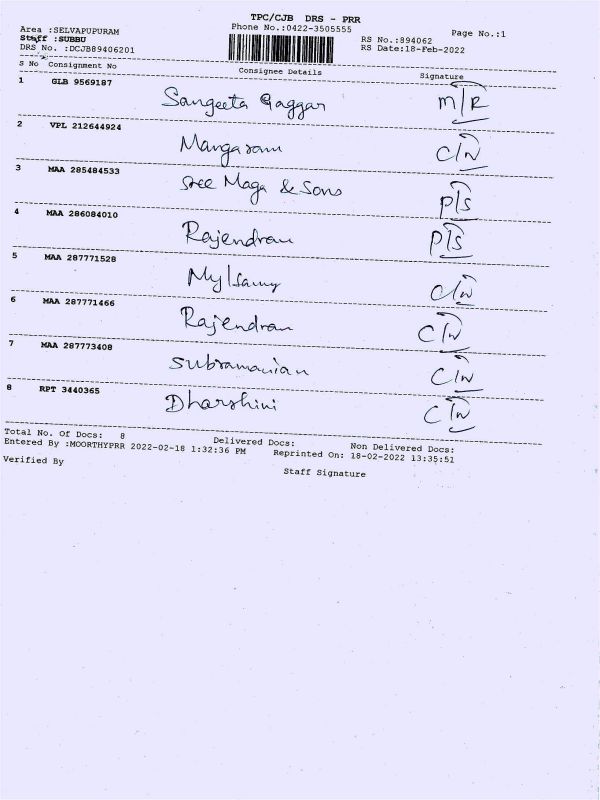 TPC/CJB DRS - PRR
Area :SELVAPUPURAM Phone No.:0422-3505555 Page No.:1
Staff :SUBBU RS No.:894062
DRS No. :DCJB89406201 RS Date:18-Feb-2022
S No Consignment No Consignee Details Signature
1 GLB 9569187 Sangeeta Gaggar M/R
2 VPL 212644924 Mangaram C/N
3 MAA 285484533 Sree Maga & Sons P/S
4 MAA 286084010 Rajendran P/S
5 MAA 287771528 Mylsamy C/N
6 MAA 287771466 Rajendran C/N
7 MAA 287773408 Subramanian C/N
8 RPT 3440365 Dharshini C/N
Total No. Of Docs: 8 Delivered Docs: Non Delivered Docs:
Entered By :MOORTHYPRR 2022-02-18 1:32:36 PM Reprinted On: 18-02-2022 13:35:51
Verified By Staff Signature